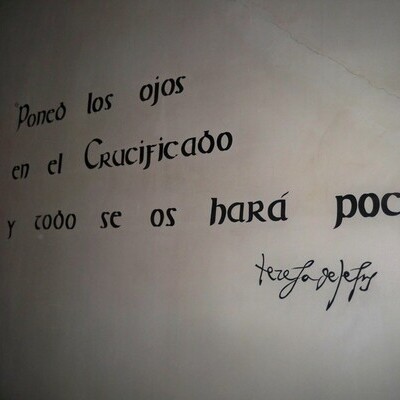 "Poned los ojos
en el Crucificado
y todo se os hará poc
teresa de jesus